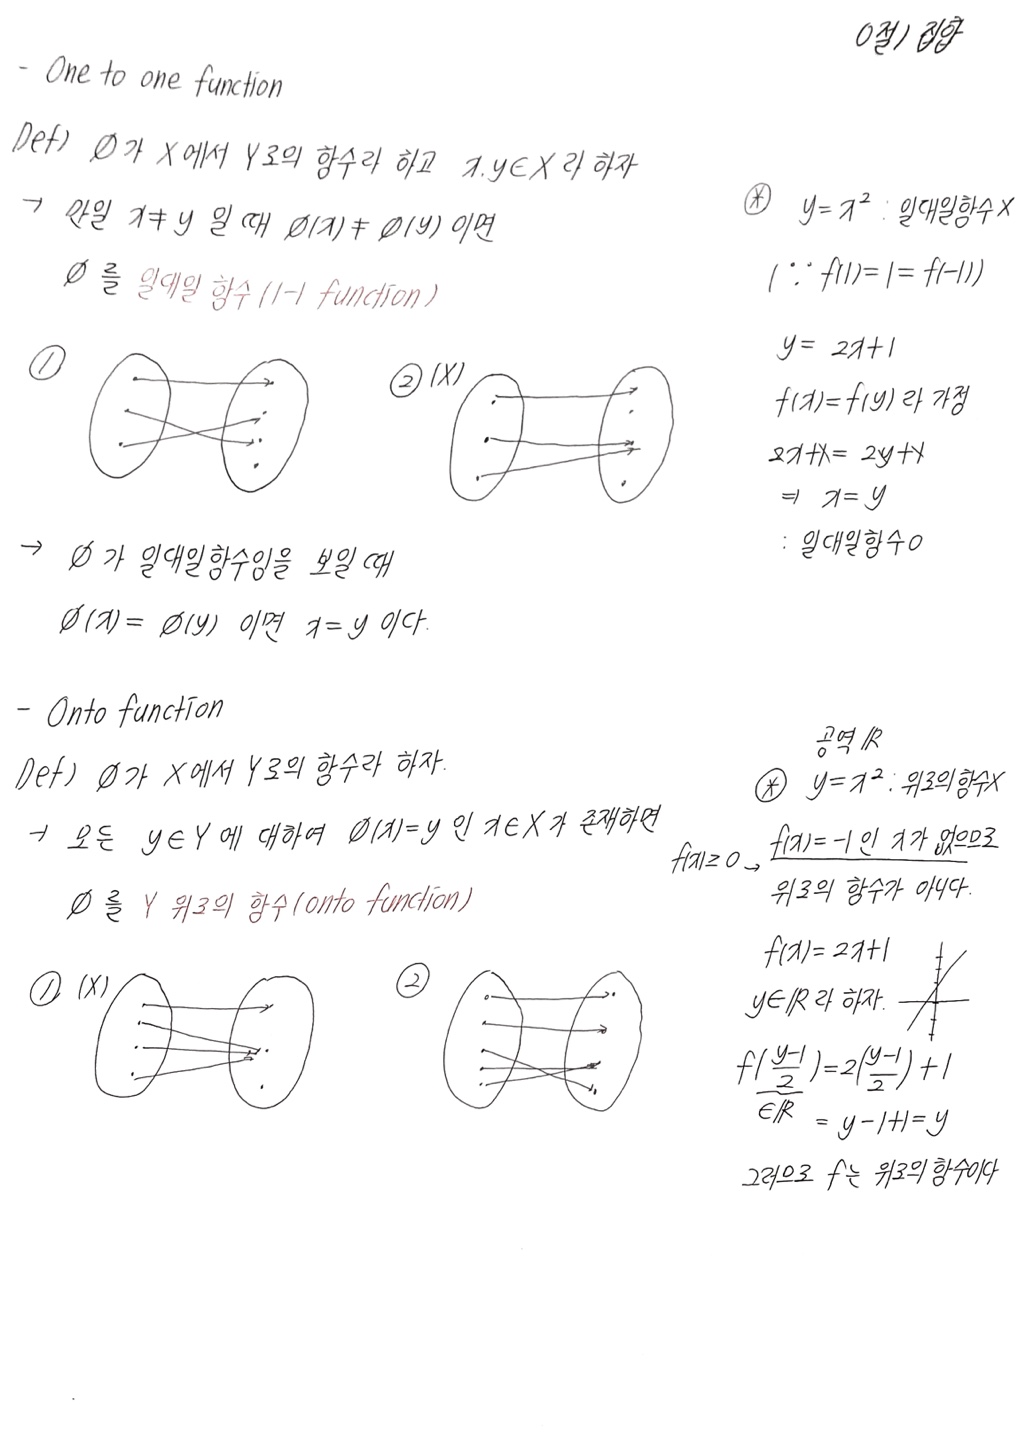 0절) 집합
- One to one function
Def) ∅가 X에서 Y로의 함수라 하고 x.y∈X라 하자
→ 만일 x≠y 일 때 ∅(x)≠∅(y) 이면
∅를 일대일 함수(1-1 function)
① ② (X)
→ ∅가 일대일함수임을 보일 때
∅(x)= ∅(y) 이면 x=y 이다.
⊛ y=x² : 일대일함수X
(∵ f(1)=1=f(-1))
y= 2x+1
f(x)=f(y)라 가정
2x+1= 2y+1
⇒ x=y
: 일대일함수O
- Onto function
Def) ∅가 X에서 Y로의 함수라 하자.
→ 모든 y∈Y에 대하여 ∅(x)=y 인 x∈X가 존재하면
∅를 Y 위로의 함수(onto function)
① (X) ②
공역 ℝ
⊛ y=x² : 위로의함수X
f(x)≥0 → f(x)=-1인 x가 없으므로
위로의 함수가 아니다.
f(x)=2x+1
y∈ℝ라 하자.
f((y-1)/2)=2((y-1)/2)+1
∈ℝ = y-1+1=y
그러므로 f는 위로의함수이다